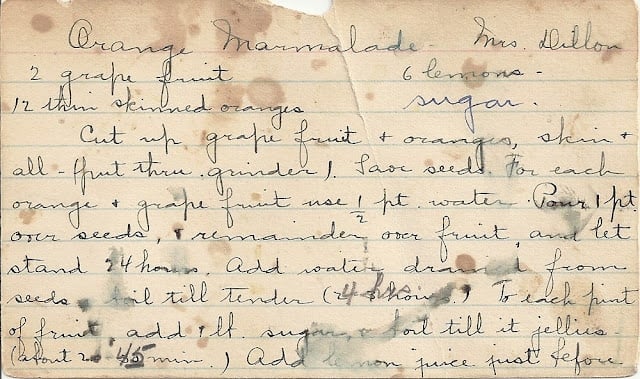 Orange Marmalade - Mrs. Dillon
2 grape fruit 6 lemons -
12 thin skinned oranges sugar.
Cut up grape fruit + oranges, skin +
all - (put thru grinder). Save seeds. For each
orange + grape fruit use 1/2 pt. water. Pour 1 pt
over seeds, + remainder over fruit, and let
stand 24 hours. Add water drained from
seeds, boil till tender (4 hrs.) To each pint
of fruit add 1 lb. sugar, + boil till it jellies -
(about 45 min.) Add lemon juice just before